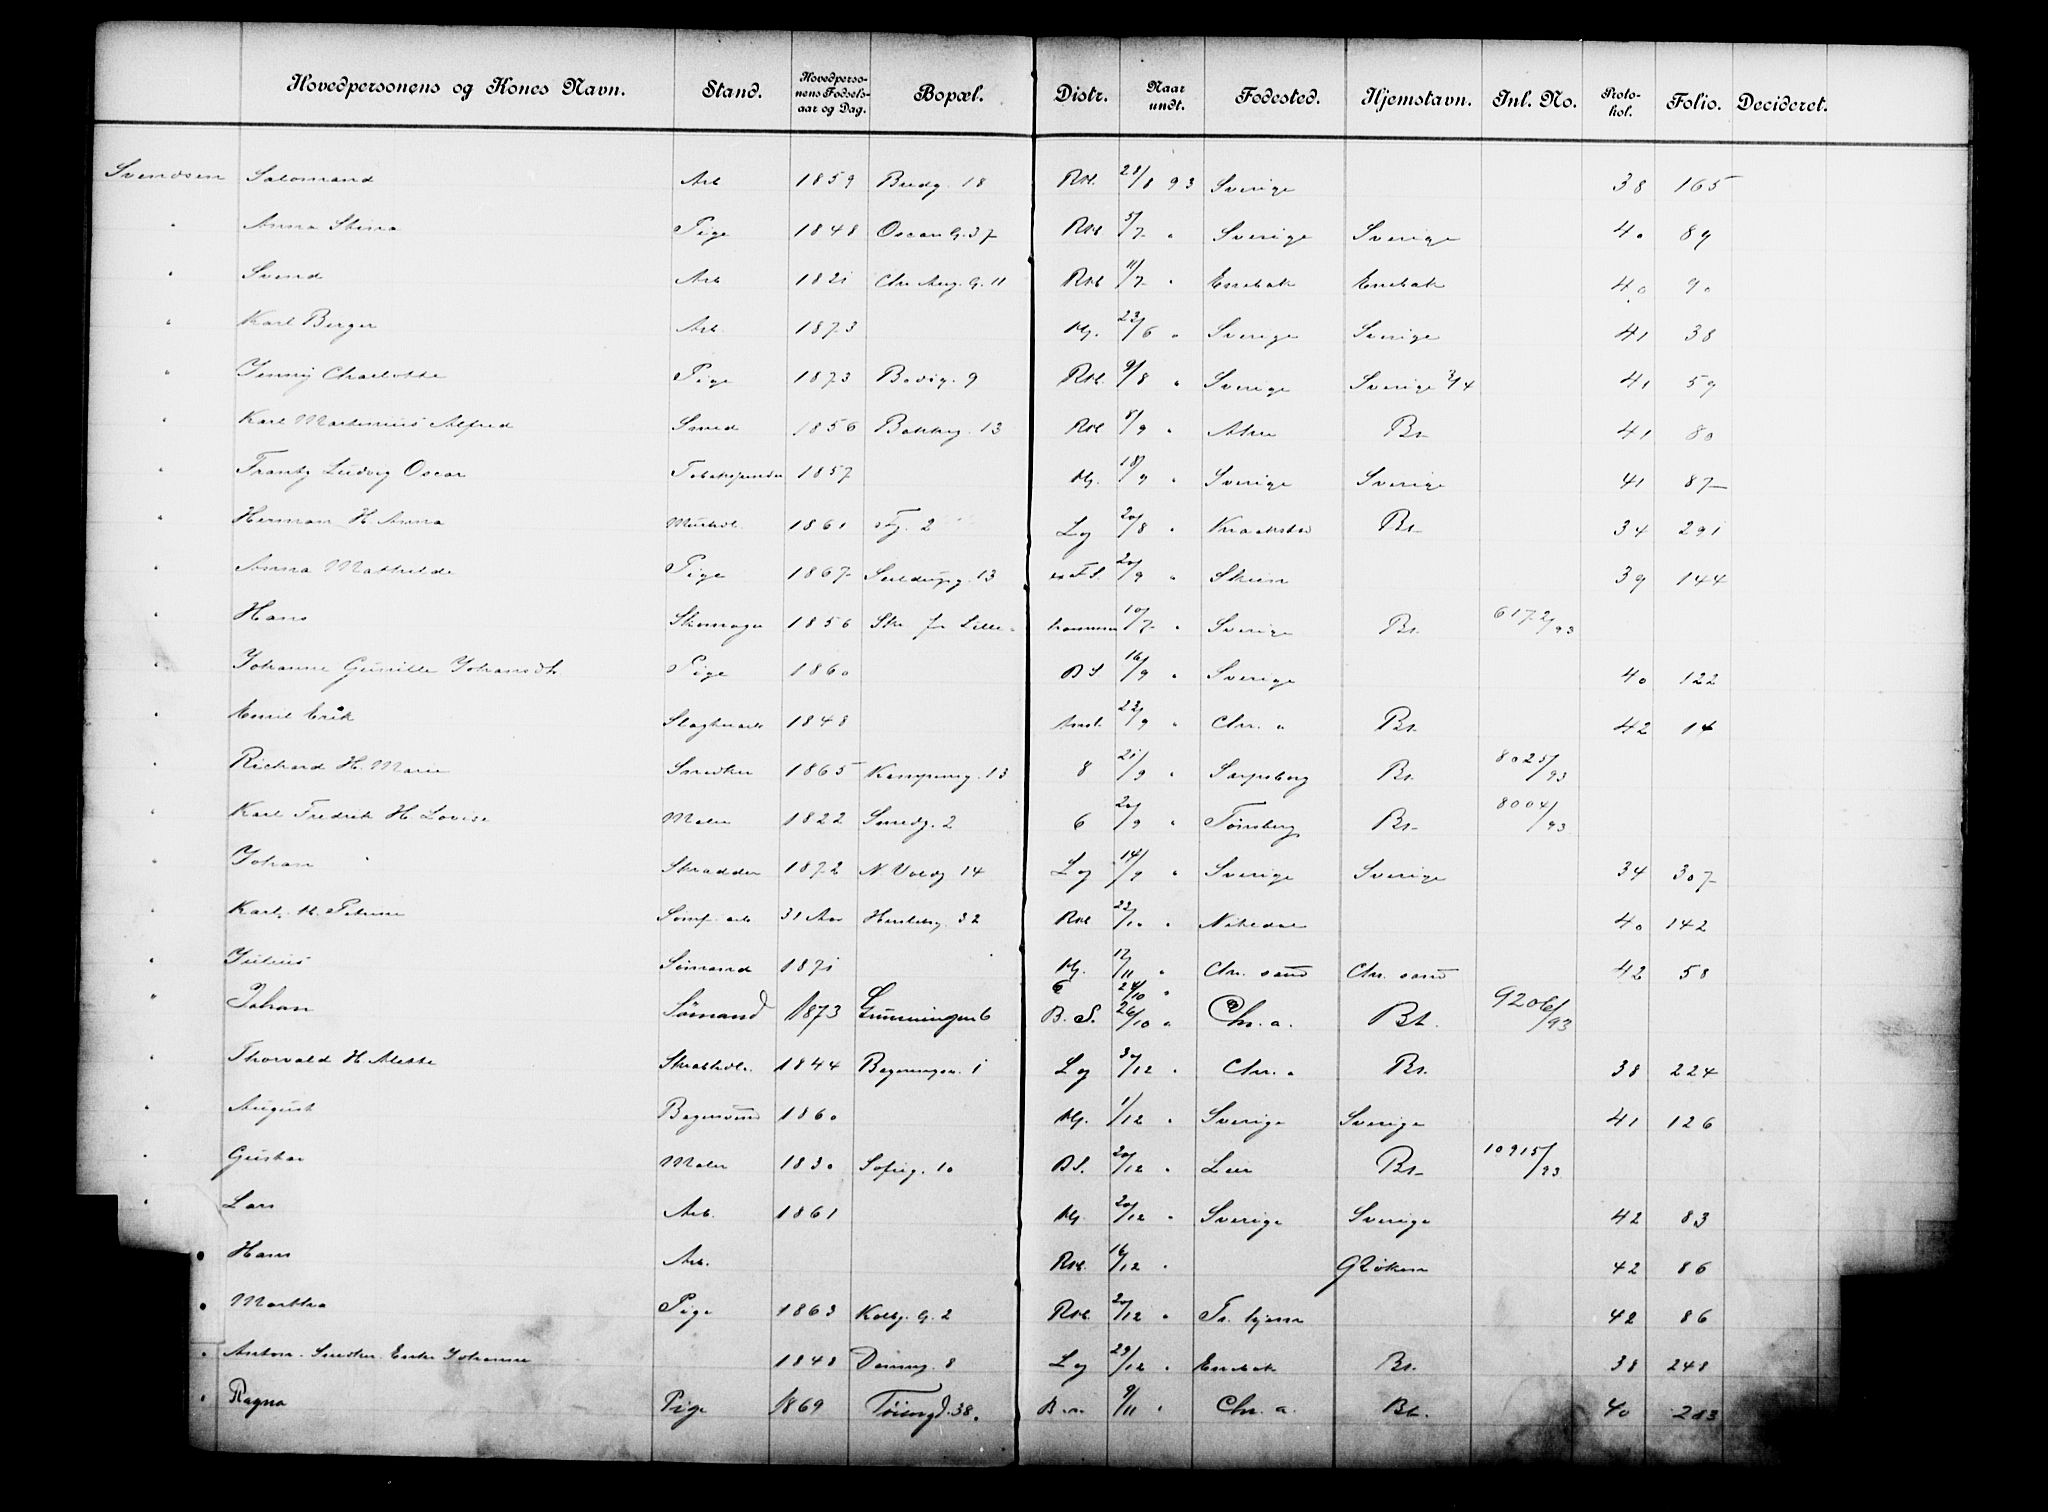 Hovedpersonens og Kones Navn. Stand. Hovedperso-nens Fødsels-aar og Dag. Bopæl. Distr. Naar undt. Fødested. Hjemstavn. Inl. No. Proto-kol. Folio. Decideret.
Svendsen Salomand Arb 1859 Bredg. 18 Rst. 28/8 93 Sverige 38 165
" Anna Stina Pige 1848 Oscars G. 37 Rst 5/7 " Sverige Sverige 40 89
" Svend Arb 1821 Chr Aug. G. 11 Rst 11/7 " Enebak Enebak 40 90
" Karl Berger Arb 1873 Kg. 23/6 " Sverige Sverige 41 38
" Jenny Charlotte Pige 1873 9 Rst. 9/8 " Sverige Sverige 41 59
" Karl Martinius Alfred Smed 1856 13 Rst 8/9 " Aker Bt. 41 80
" Frantz Ludvig Oscar 1857 Kg. 18/9 " Sverige Sverige 41 87
" Herman H. Anna 1861 2 Lg 20/8 " Bt 34 291
" Anna Mathilde Pige 1867 13 20/9 " Skien 39 144
" Hans Skomager 1856 10/7 " Sverige Bt. 6172/93
" Johanne Gunille Johansdt Pige 1860 BS 16/9 " Sverige 40 122
" Emil Erik 1848 22/9 " Chr. a Bt. 42 14
" Richard H. Marie Snedker 1865 Kampeng. 13 8 21/9 " Sarpsborg Bt. 8025/93
" Karl Fredrik H Lovise Maler 1822 Smedg. 2 6 20/9 " Tønsberg Bt 8004/93
" Johan Skradder 1872 N Voldg 14 Lg 14/9 " Sverige Sverige 34 307
" Karl. H. Petrine arb 31 Aar Herslebg. 32 Rst 22/10 " Nitedal 40 142
" Julius Sømand 1871 Kg. 17/11 " Chr. sand Chr. sand 42 58
" Johan Sømand 1873 Grünningen 6 6 24/10 " B. S. 26/10 " Chr. a. Bt. 9206/93
" Thorvald H Mette 1844 1 Lg 30/12 " Chr. a Bt. 38 224
" August Bagersvend 1860 Kg. 1/12 " Sverige Sverige 41 126
" Gustav Maler 1830 Sofieg. 10 BS. 20/12 " Lier Bt 10915/93
" Lars Arb. 1861 Kg. 20/12 " Sverige Sverige 42 83
" Hans Arb. Rst. 16/12 " Røken 42 86
" Martha Pige 1863 Kolbj. G. 2 Rst. 20/12 " Tr. hjem 42 86
" Anton. Snedker. Enke Johanne 1848 8 Lg 29/12 " Enebak Bt. 38 248
" Ragna Pige 1869 Tøiengd. 38. 9/11 " Chr. a. Bt. 40 213